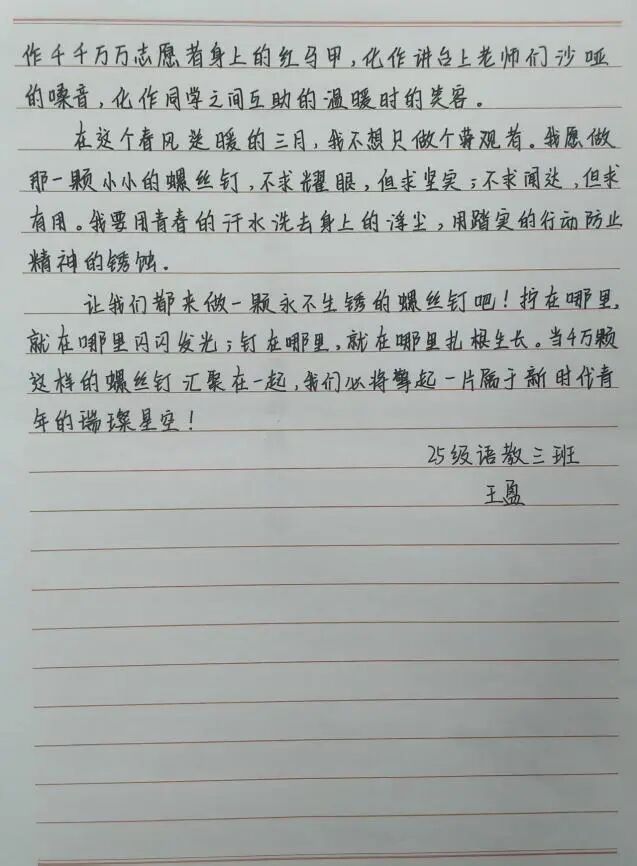 作千千万万志愿者身上的红马甲，化作讲台上老师们沙哑
的嗓音，化作同学之间互助的温暖时的笑容。
在这个春风送暖的三月，我不想只做个旁观者。我愿做
那一颗小小的螺丝钉，不求耀眼，但求坚实；不求闻达，但求
有用。我要用青春的汗水洗去身上的浮尘，用踏实的行动防止
精神的锈蚀.
让我们都来做一颗永不生锈的螺丝钉吧！拧在哪里，
就在哪里闪闪发光；钉在哪里，就在哪里扎根生长。当千万颗
这样的螺丝钉汇聚在一起，我们必将擎起一片属于新时代青
年的璀璨星空！
25级语教三班
王盈